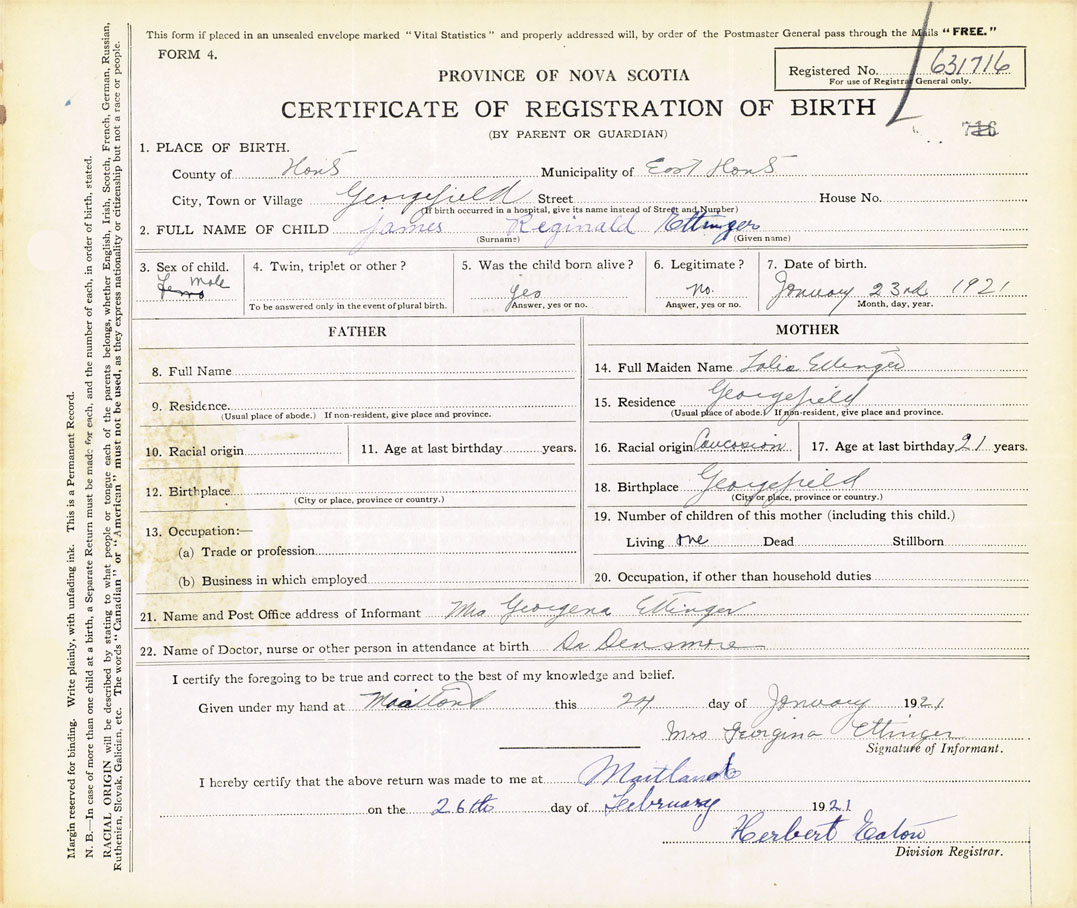 This form if placed in an unsealed envelope marked "Vital Statistics" and properly addressed will, by order of the Postmaster General pass through the Mails "FREE."
FORM 4.
Registered No. 631716
For use of Registrar General only.
PROVINCE OF NOVA SCOTIA
CERTIFICATE OF REGISTRATION OF BIRTH
(BY PARENT OR GUARDIAN)
716
1. PLACE OF BIRTH.
County of Hants Municipality of East Hants
City, Town or Village Georgefield Street House No.
(If birth occurred in a hospital, give its name instead of Street and Number)
2. FULL NAME OF CHILD James Reginald Ettinger
(Surname) (Given name)
3. Sex of child. Male
4. Twin, triplet or other?
To be answered only in the event of plural birth.
5. Was the child born alive? yes
Answer, yes or no.
6. Legitimate? no.
Answer, yes or no.
7. Date of birth. January 23rd 1921
Month, day, year.
FATHER
8. Full Name
9. Residence
(Usual place of abode.) If non-resident, give place and province.
10. Racial origin 11. Age at last birthday years.
12. Birthplace
(City or place, province or country.)
13. Occupation:—
(a) Trade or profession
(b) Business in which employed
MOTHER
14. Full Maiden Name Ettinger
15. Residence Georgefield
(Usual place of abode.) If non-resident, give place and province.
16. Racial origin Caucasion 17. Age at last birthday 21 years.
18. Birthplace Georgefield
(City or place, province or country.)
19. Number of children of this mother (including this child.)
Living one Dead Stillborn
20. Occupation, if other than household duties
21. Name and Post Office address of Informant Mrs Georgena Ettinger
22. Name of Doctor, nurse or other person in attendance at birth Dr Densmore
I certify the foregoing to be true and correct to the best of my knowledge and belief.
Given under my hand at Maitland this 24 day of January 1921
Mrs Georgina Ettinger
Signature of Informant.
I hereby certify that the above return was made to me at Maitland
on the 26th day of February 1921
Herbert Eaton
Division Registrar.
Margin reserved for binding. Write plainly, with unfading ink. This is a Permanent Record.
N. B.—In case of more than one child at a birth, a Separate Return must be made for each, and the number of each, in order of birth, stated.
RACIAL ORIGIN will be described by stating to what people or tongue each of the parents belongs, whether English, Irish, Scotch, French, German, Russian,
Ruthenien, Slovak, Galician, etc. The words "Canadian" or "American" must not be used, as they express nationality or citizenship but not a race or people.